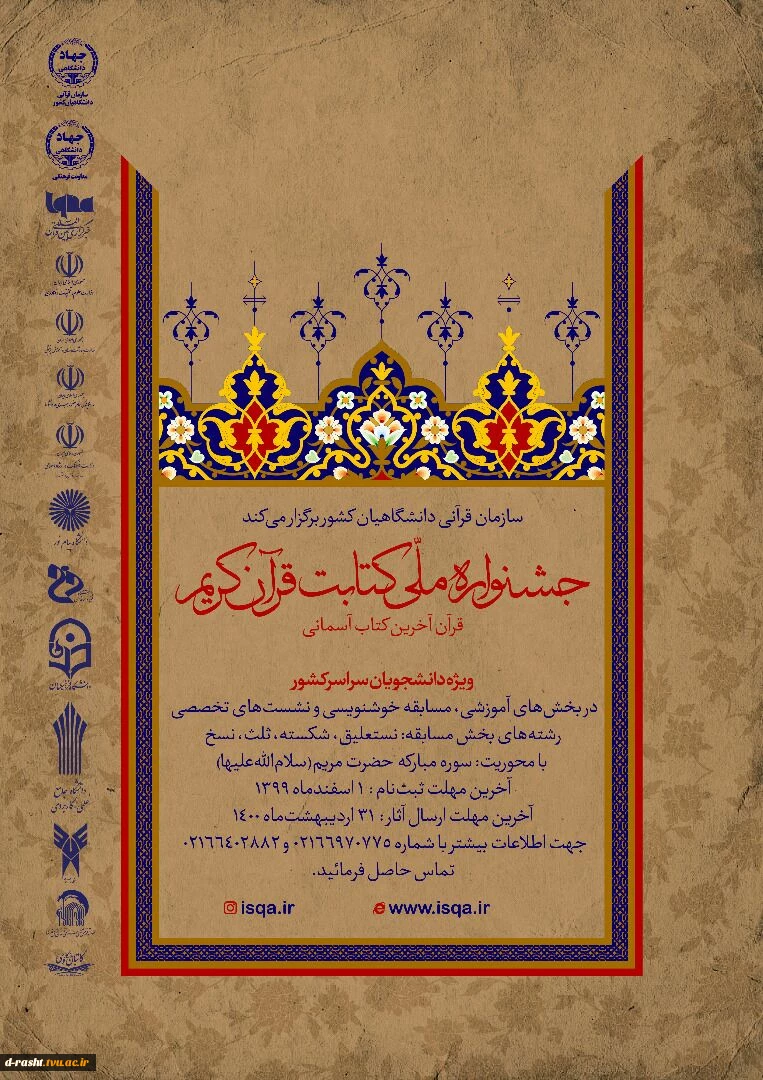 سازمان قرآنی دانشگاهیان کشور برگزار می‌کند
جشنواره ملّی کتابت قرآن کریم
قرآن آخرین کتاب آسمانی
ویژه دانشجویان سراسر کشور
در بخش‌های آموزشی، مسابقه خوشنویسی و نشست‌های تخصصی
رشته‌های بخش مسابقه: نستعلیق، شکسته، ثلث، نسخ
با محوریت: سوره مبارکه حضرت مریم (سلام‌الله‌علیها)
آخرین مهلت ثبت‌نام: ۱ اسفندماه ۱۳۹۹
آخرین مهلت ارسال آثار: ۳۱ اردیبهشت‌ماه ۱۴۰۰
جهت اطلاعات بیشتر با شماره ۰۲۱۶۶۹۷۰۷۷۵ و ۰۲۱۶۶۴۰۲۸۸۲
تماس حاصل فرمائید.
isqa.ir www.isqa.ir
جهاد
دانشگاهی
سازمان قرآنی
دانشگاهیان کشور
جهاد
دانشگاهی
معاونت فرهنگی
iqna
دانشگاه پیام نور
دانشگاه فرهنگیان
دانشگاه جامع
علمی کاربردی
d-rasht.tvu.ac.ir